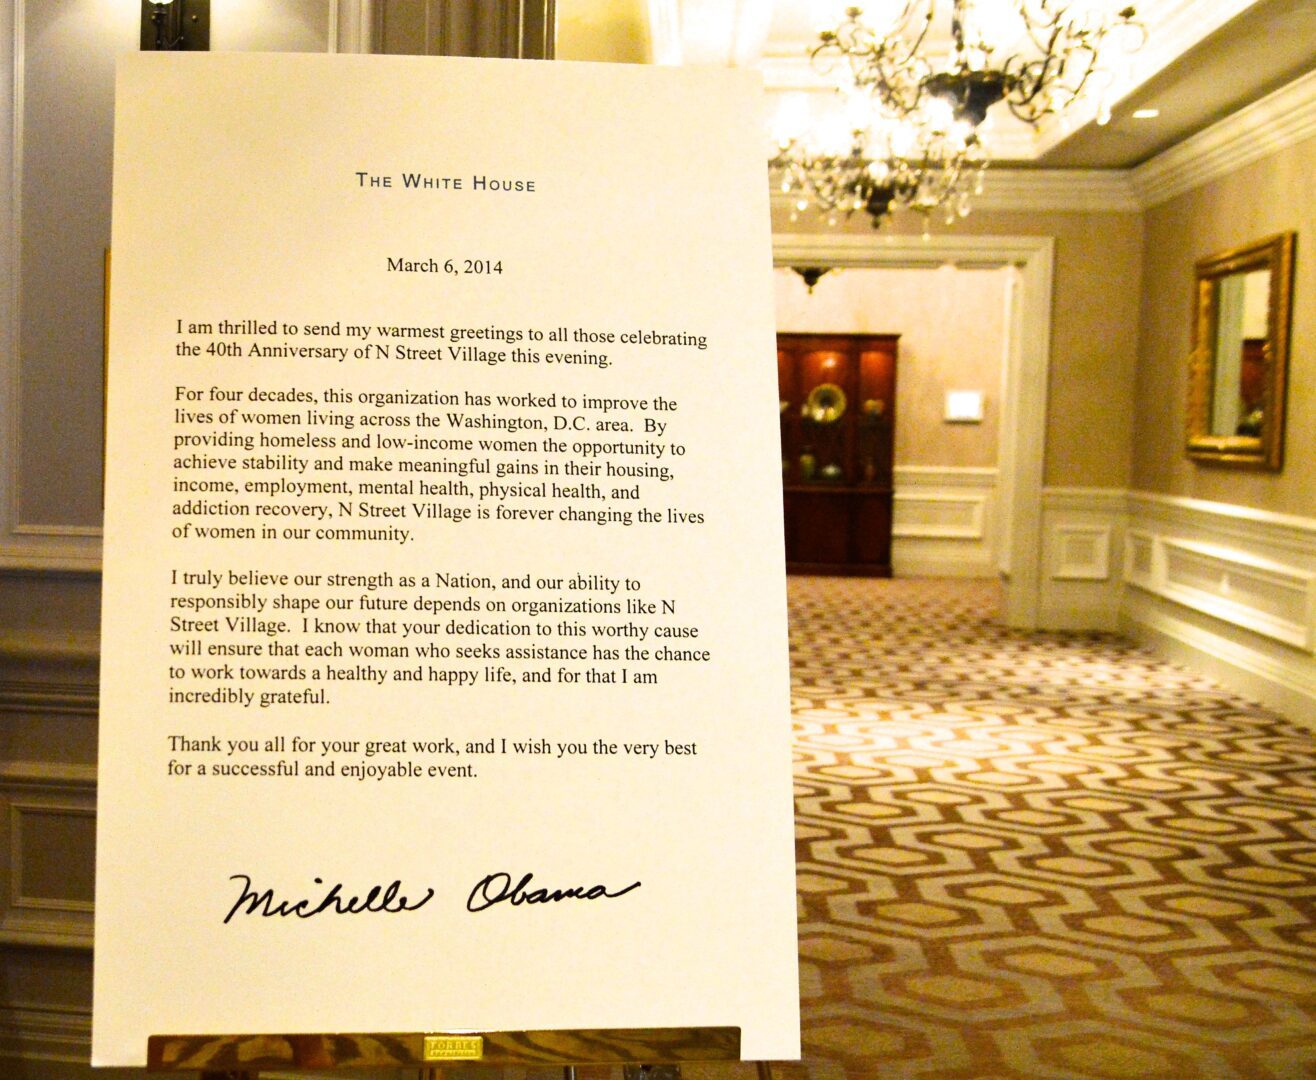 THE WHITE HOUSE
March 6, 2014
I am thrilled to send my warmest greetings to all those celebrating
the 40th Anniversary of N Street Village this evening.
For four decades, this organization has worked to improve the
lives of women living across the Washington, D.C. area.  By
providing homeless and low-income women the opportunity to
achieve stability and make meaningful gains in their housing,
income, employment, mental health, physical health, and
addiction recovery, N Street Village is forever changing the lives
of women in our community.
I truly believe our strength as a Nation, and our ability to
responsibly shape our future depends on organizations like N
Street Village.  I know that your dedication to this worthy cause
will ensure that each woman who seeks assistance has the chance
to work towards a healthy and happy life, and for that I am
incredibly grateful.
Thank you all for your great work, and I wish you the very best
for a successful and enjoyable event.
Michelle Obama
FORBES